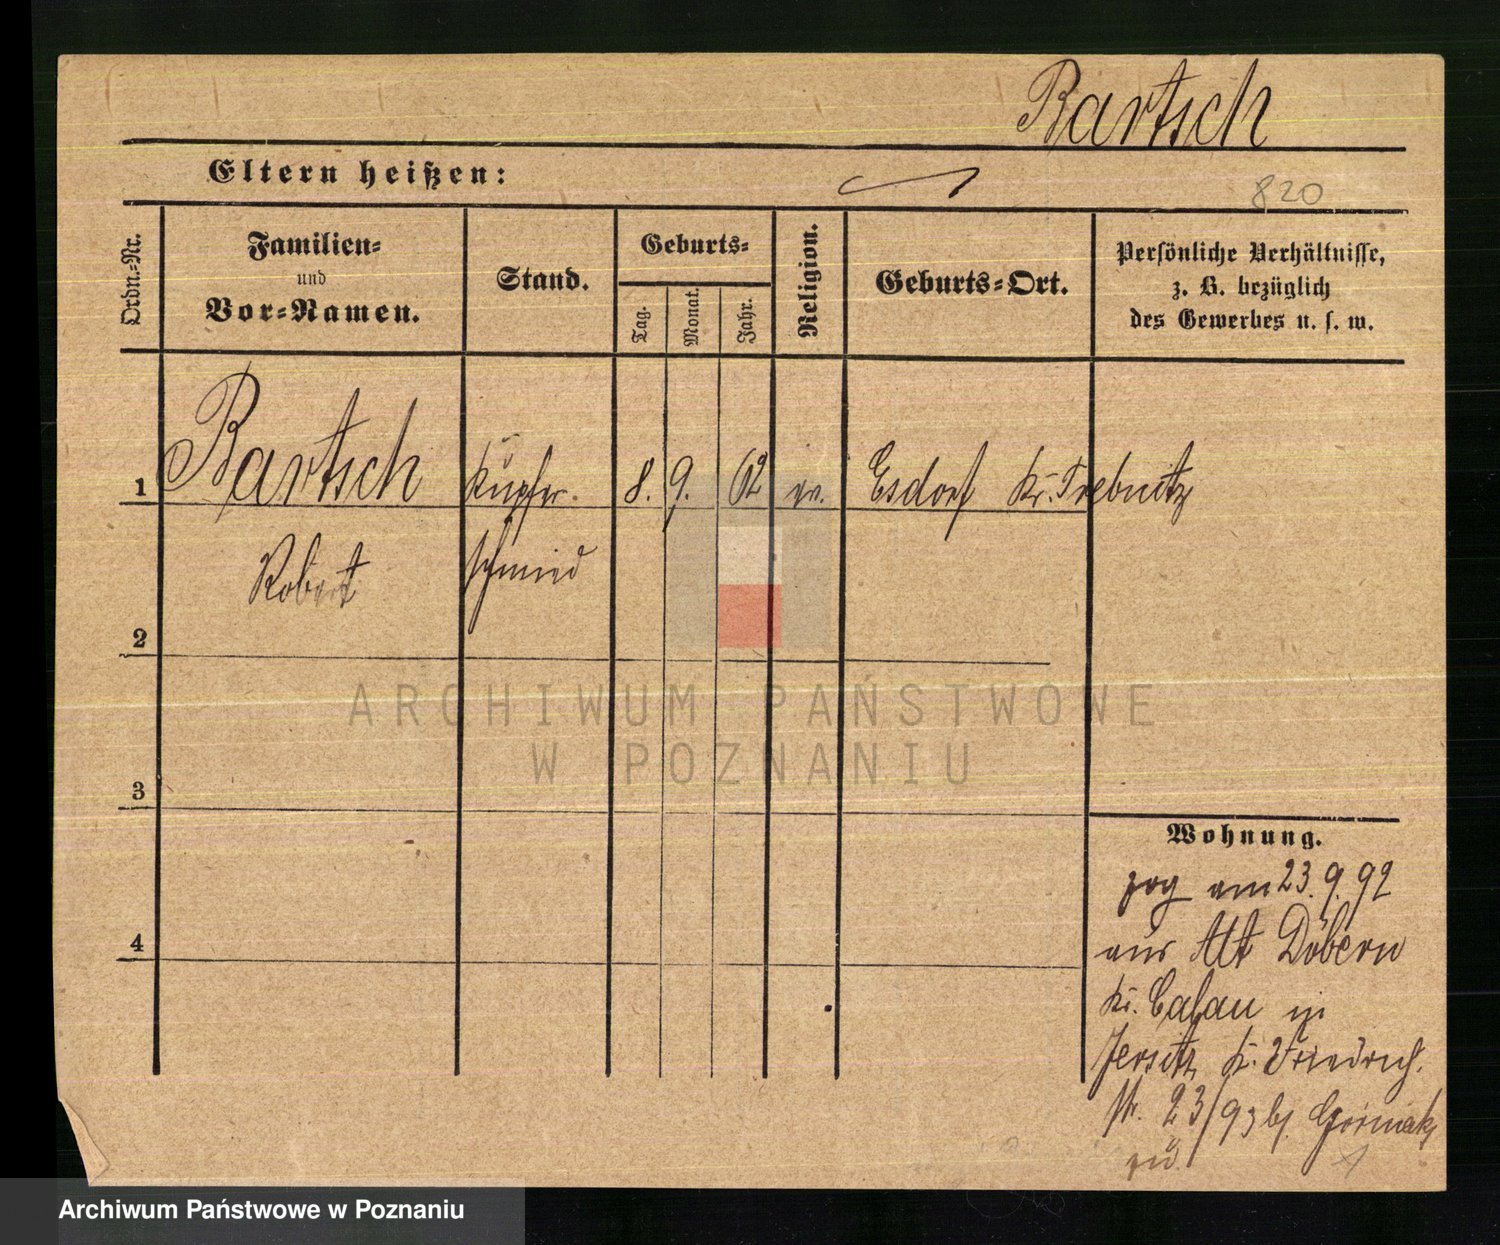 Bartsch
Eltern heißen:
820
Ordn.-Nr.
Familien-
und
Vor-Namen.
Stand.
Geburts-
Tag.
Monat.
Jahr.
Religion.
Geburts-Ort.
Persönliche Verhältnisse,
z. B. bezüglich
des Gewerbes u. s. w.
1 Bartsch Kupfer- 8. 9. 62 ev. Esdorf Kr. Trebnitz
Robert schmied
2
3
4
Wohnung.
zog am 23.9.92
aus Alt Döbern
Kr. Calau in
Jersitz k. Friedrich
str. 23/93 b/. Gorniak
zu
ARCHIWUM PAŃSTWOWE
W POZNANIU
Archiwum Państwowe w Poznaniu